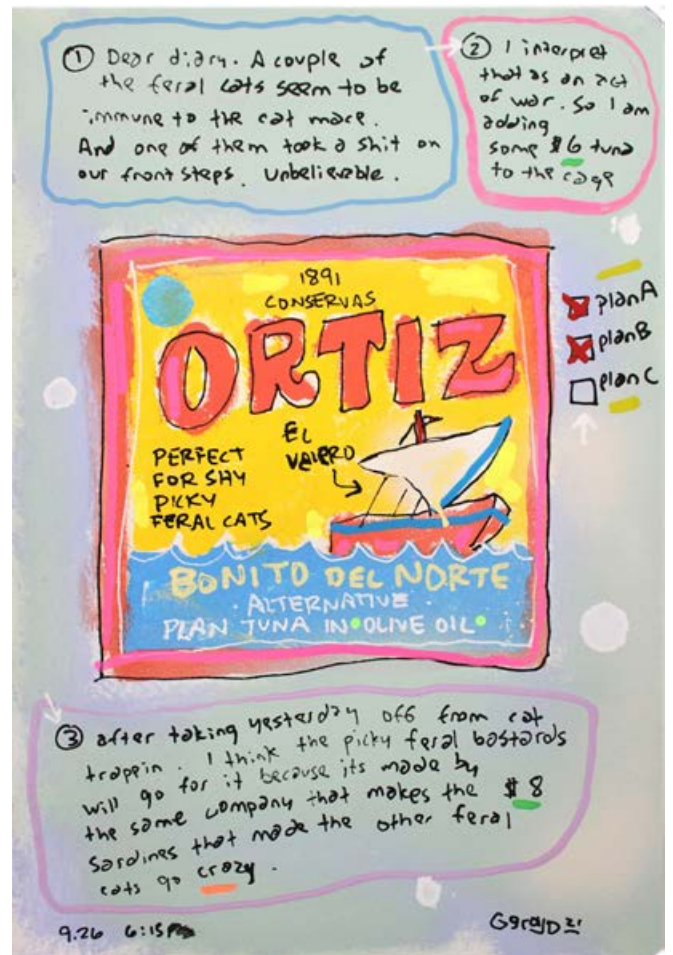 ① Dear diary. A couple of
the feral cats seem to be
immune to the cat mace.
And one of them took a shit on
our front steps. Unbelievable.
② I interpret
that as an act
of war. So I am
adding
some $6 tuna
to the cage
1891
CONSERVAS
ORTIZ
EL
VELERO
PERFECT
FOR SHY
PICKY
FERAL CATS
BONITO DEL NORTE
· ALTERNATIVE ·
PLAN TUNA IN•OLIVE OIL•
plan A
plan B
plan C
③ after taking yesterday off from cat
trappin. I think the picky feral bastards
will go for it because its made by
the same company that makes the $8
sardines that made the other feral
cats go crazy.
9.26 6:15PM